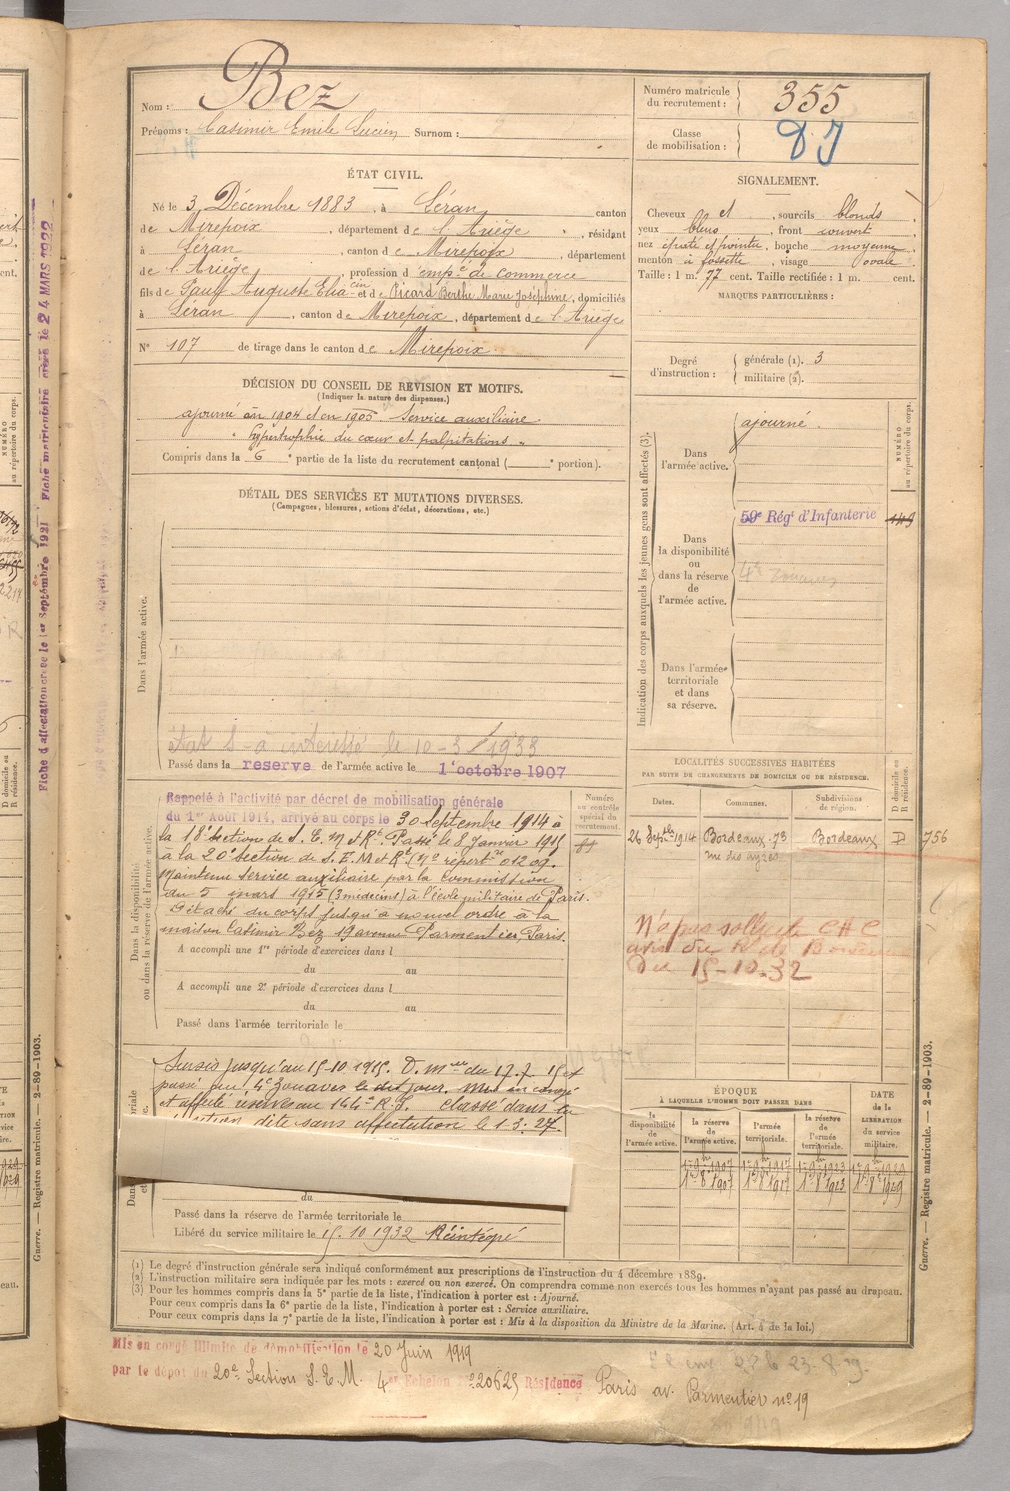 Nom : Bez
Prénoms : Casimir Emile Lucien Surnom :
Numéro matricule du recrutement : 355
Classe de mobilisation :
ÉTAT CIVIL.
Né le 3 Décembre 1883, à Léran, canton
de Mirepoix, département de l'Ariège, résidant
à Léran, canton de Mirepoix, département
de l'Ariège, profession d'emp.é de commerce
fils de Paul Auguste Eliacin et de Picard Berthe Marie Joséphine, domiciliés
à Léran, canton de Mirepoix, département de l'Ariège
N° 107 de tirage dans le canton de Mirepoix
SIGNALEMENT.
Cheveux et , sourcils blonds,
yeux bleus, front couvert
nez épaté et pointu, bouche moyenne,
menton à fossette, visage ovale.
Taille : 1 m. 77 cent. Taille rectifiée : 1 m. cent.
MARQUES PARTICULIÈRES :
Degré d'instruction : générale (1). 3
militaire (2).
DÉCISION DU CONSEIL DE REVISION ET MOTIFS.
(Indiquer la nature des dispenses.)
ajourné en 1904 et en 1905 Service auxiliaire
" hypertrophie du cœur et palpitations "
Compris dans la 6e partie de la liste du recrutement cantonal ( e portion).
DÉTAIL DES SERVICES ET MUTATIONS DIVERSES.
(Campagnes, blessures, actions d'éclat, décorations, etc.)
Dans l'armée active.
le 10-3-1933
Passé dans la reserve de l'armée active le 1er octobre 1907
Indication des corps auxquels les jeunes gens sont affectés (3).
NUMÉRO au répertoire du corps.
Dans l'armée active.
ajourné.
Dans la disponibilité ou dans la réserve de l'armée active.
59e Régt d'Infanterie 149
4e Zouaves
Dans l'armée territoriale et dans sa réserve.
Dans la disponibilité ou dans la réserve de l'armée active.
Rappelé à l'activité par décret de mobilisation générale
du 1er Août 1914, arrivé au corps le 30 Septembre 1914 à
la 18e Section de S. E. M et R.t Passé le 8 Janvier 1915
à la 20e section de S. E. M et R.t (No répert.re 01209.
Maintenu Service auxiliaire par la Commission
du 5 mars 1915 (3 médecins) à l'école militaire de Paris.
Détaché du corps jusqu'à nouvel ordre à la
maison Casimir Bez 19 avenue Parmentier Paris.
A accompli une 1re période d'exercices dans l
du au
A accompli une 2e période d'exercices dans l
du au
Passé dans l'armée territoriale le
Numéro au contrôle spécial du recrutement.
LOCALITÉS SUCCESSIVES HABITÉES
PAR SUITE DE CHANGEMENTS DE DOMICILE OU DE RÉSIDENCE.
Dates. Communes. Subdivisions de région. D domicile ou R résidence.
26 Sept.bre 1914 Bordeaux 73 Bordeaux D 756
rue des ayres
N'a pas sollicité CHC
avis du R. de Bordeaux
Du 15-10-32
Sursis jusqu'au 15-10-1915. D. m.elle du 17.7.15 et
passé au 4e Zouaves le dit jour.
et affecté réserves au 144e R.I. Classé dans la
dite sans affectation le 1-3-27.
du au
Passé dans la réserve de l'armée territoriale le
Libéré du service militaire le 15.10.1932 Réintégré
ÉPOQUE
À LAQUELLE L'HOMME DOIT PASSER DANS
la disponibilité de l'armée active. la réserve de l'armée active. l'armée territoriale. la réserve de l'armée territoriale.
DATE de la LIBÉRATION du service militaire.
(1) Le degré d'instruction générale sera indiqué conformément aux prescriptions de l'instruction du 4 décembre 1889.
(2) L'instruction militaire sera indiquée par les mots : exercé ou non exercé. On comprendra comme non exercés tous les hommes n'ayant pas passé au drapeau.
(3) Pour les hommes compris dans la 5e partie de la liste, l'indication à porter est : Ajourné.
Pour ceux compris dans la 6e partie de la liste, l'indication à porter est : Service auxiliaire.
Pour ceux compris dans la 7e partie de la liste, l'indication à porter est : Mis à la disposition du Ministre de la Marine. (Art. 4 de la loi.)
Mis en congé illimité de démobilisation le 20 Juin 1919
par le dépôt du 20e Section S. E. M. 4e Echelon no 20625 Résidence Paris av. Parmentier no 19
Guerre. — Registre matricule. — 2-89-1903.
Fiche d'affectation créée le 1er Septembre 1921 Fiche matriculaire créée le 24 MARS 1922
Guerre. — Registre matricule. — 2-89-1903.